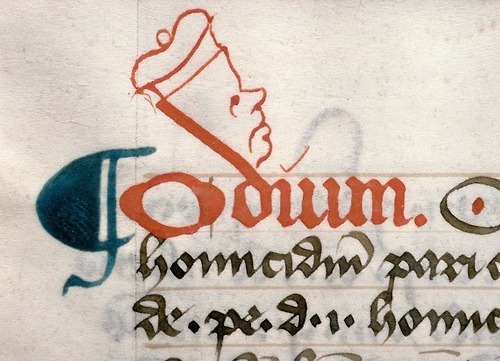 ¶ Odium. O
homicidiū pari
de. pe. d. i. homic